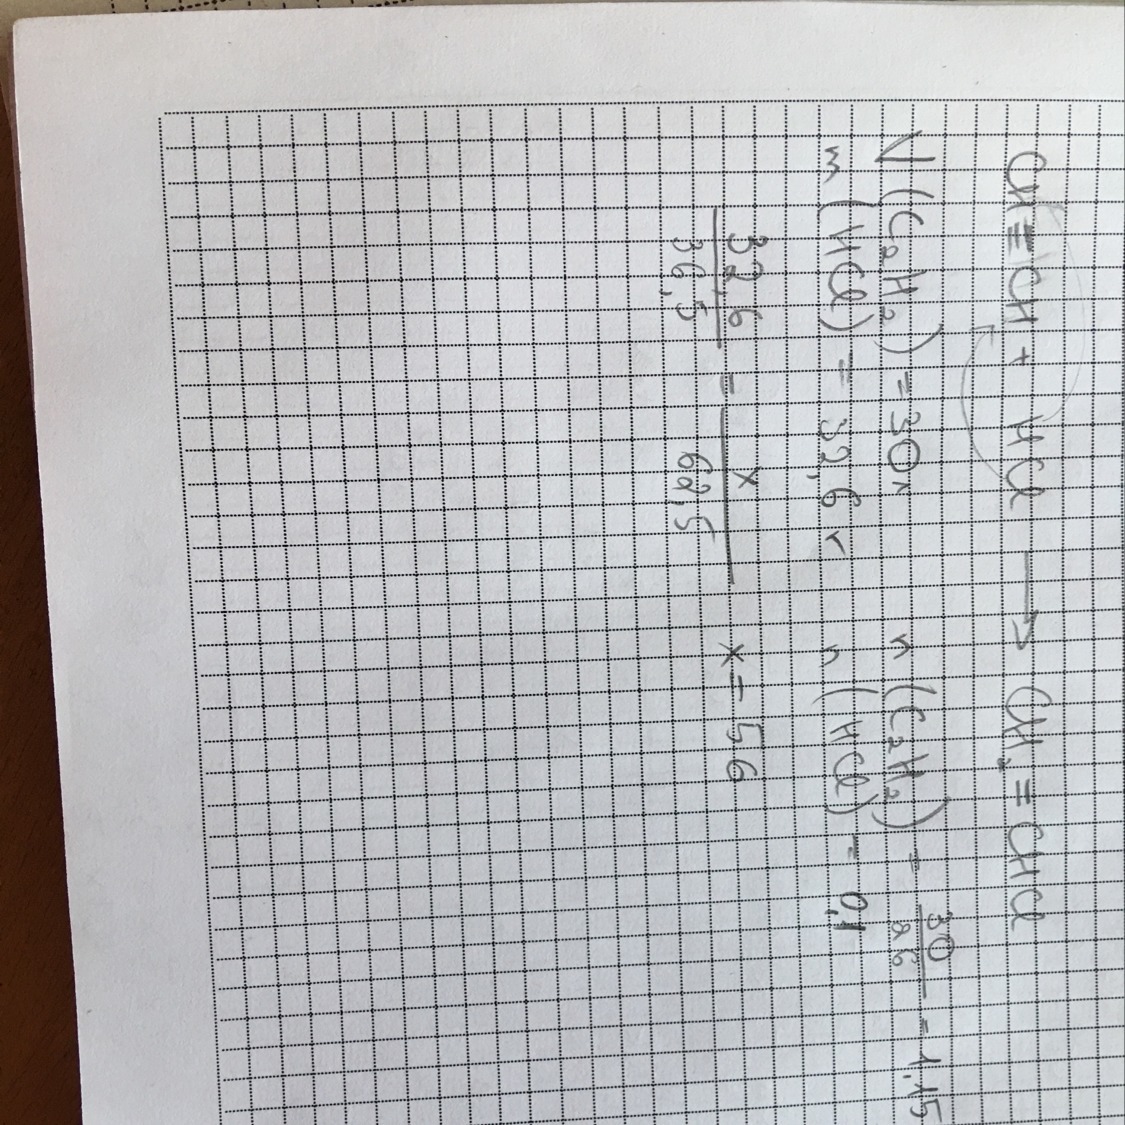 CH≡CH + HCl → CH₂=CHCl
V(C₂H₂) = 30г n(C₂H₂) = 30/26 = 1,15
m(HCl) = 32,6 г n(HCl) = 0,1
32,6/36,5 = x/62,5 x = 56